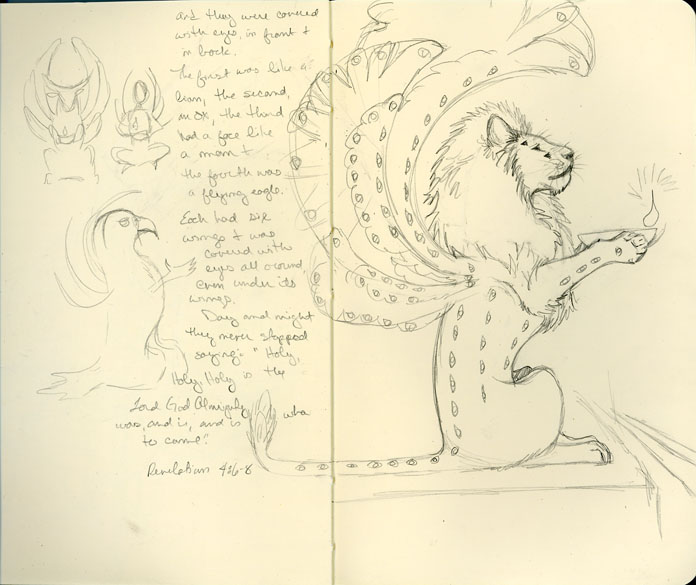 and they were covered
with eyes, in front &
in back.
The first was like a
lion, the second,
an ox, the third
had a face like
a man &
the fourth was
a flying eagle.
Each had six
wings & was
covered with
eyes all around
even under its
wings.
Day and night
they never stopped
saying: "Holy,
Holy, Holy is the
Lord God Almighty who
was, and is, and is
to come."
Revelations 4:6-8